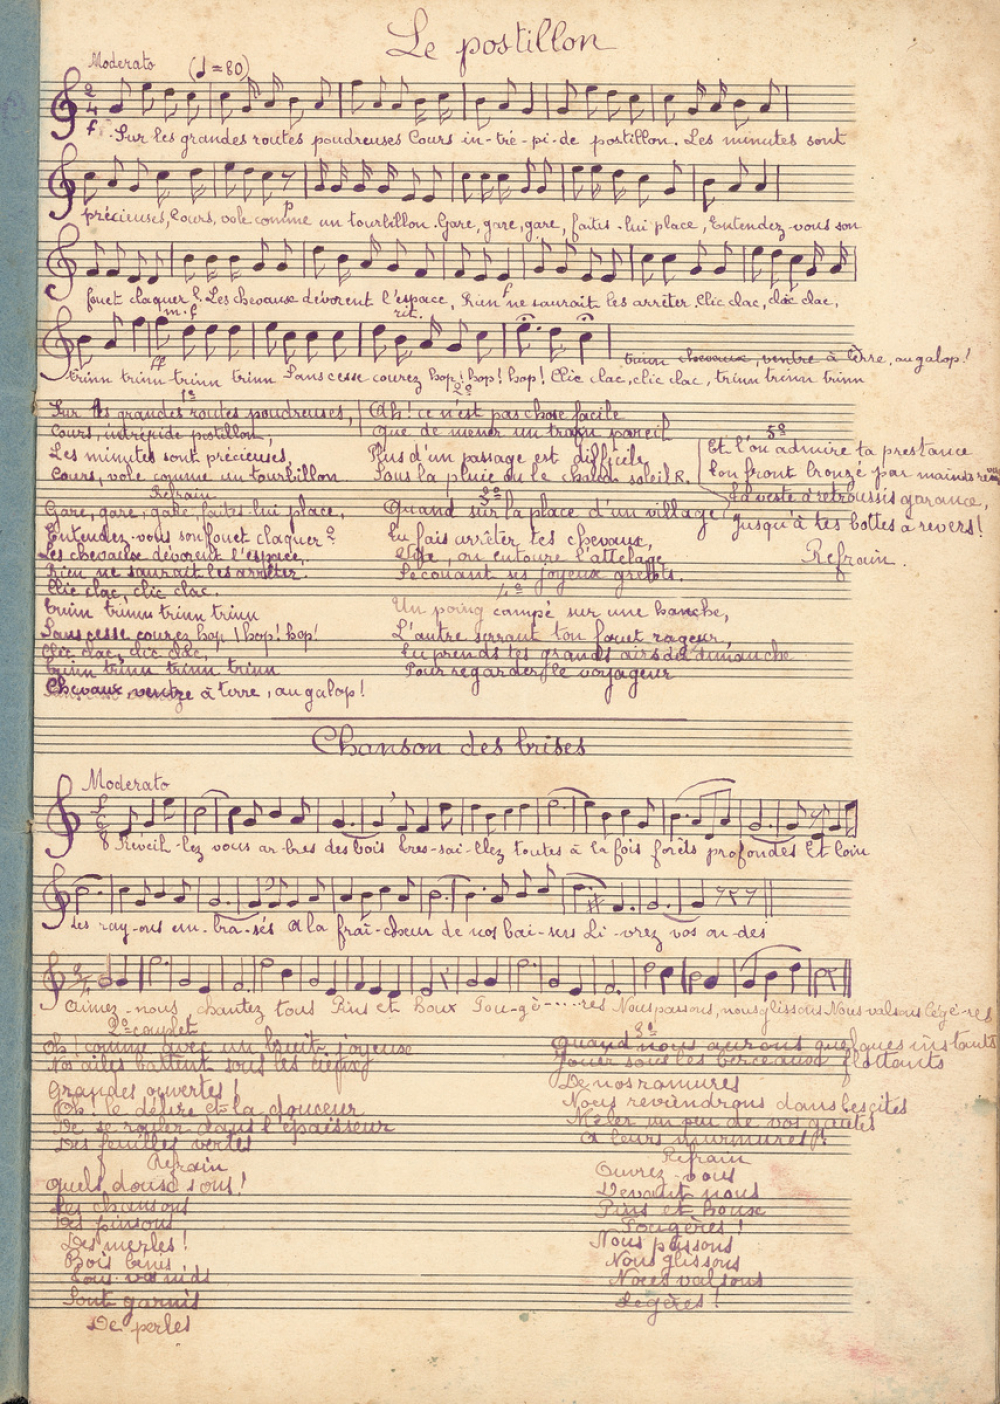 Le postillon
Moderato (♩=80)
2
4
f
Sur les grandes routes poudreuses Cours in-tré-pi-de postillon. Les minutes sont
précieuses, Cours, vole comme un tourbillon. Gare, gare, gare, faites-lui place, Entendez-vous son
p
fouet claquer? Les chevaux dévorent l'espace, Rien ne saurait les arrêter. Clic clac, clic clac,
f
m.f rit.
trinn chevaux, ventre à terre, au galop!
ff
trinn trinn trinn trinn Sans cesse courez hop! hop! hop! Clic clac, clic clac, trinn trinn trinn
1º
Sur les grandes routes poudreuses,
Cours, intrépide postillon,
Les minutes sont précieuses,
Cours, vole comme un tourbillon
Refrain
Gare, gare, gare, faites-lui place,
Entendez-vous son fouet claquer?
Les chevaux dévorent l'espace,
Rien ne saurait les arrêter.
Clic clac, clic clac.
trinn trinn trinn trinn
Sans cesse courez hop! hop! hop!
Clic clac, clic clac,
trinn trinn trinn trinn
Chevaux, ventre à terre, au galop!
2º
Ah! ce n'est pas chose facile
Que de mener un train pareil
Plus d'un passage est difficile
Sous la pluie ou le chaud soleil R.
3º
Quand sur la place d'un village
Tu fais arrêter tes chevaux,
on entoure l'attelage
Secouant ses joyeux grelots.
4º
Un poing campé sur une hanche,
L'autre serrant ton fouet rageur,
Tu prends tes grands airs du dimanche
Pour regarder le voyageur
5º
Et l'on admire ta prestance
Ton front bronzé par maints
Ta veste à retroussis garance,
Jusqu'à tes bottes à revers!
Refrain.
Chanson des brises
Moderato
6
8
Réveil-lez vous ar-bres des bois tres-sai-llez toutes à la fois forêts profondes Et loin
des ray-ons em-bra-sés A la fraî-cheur de nos bai-sers Li-vrez vos on-des
Ouvrez-nous, chantez tous Pins et houx Fou-gè-....res Nous passons, nous glissons Nous valsons légè-res
2º couplet
Oh! comme avec un bruit joyeux
Nos ailes battent sous les cieux
Grandes ouvertes!
Oh! le délire et la douceur
De se rouler dans l'épaisseur
Des feuilles vertes
Refrain
Quels doux sons!
Les chansons
Des pinsons,
Des merles!
Bois bénis
Tous vos nids
Sont garnis
De perles
3º
Quand nous aurons quelques instants
Jouer sous les berceaux flottants
De nos ramures
Nous reviendrons dans les cités
Mêler un peu de vos gaietés
A leurs murmures!
Refrain
Ouvrez-vous
Devant nous
Pins et houx
Fougères!
Nous passons
Nous glissons
Nous valsons
Légères!